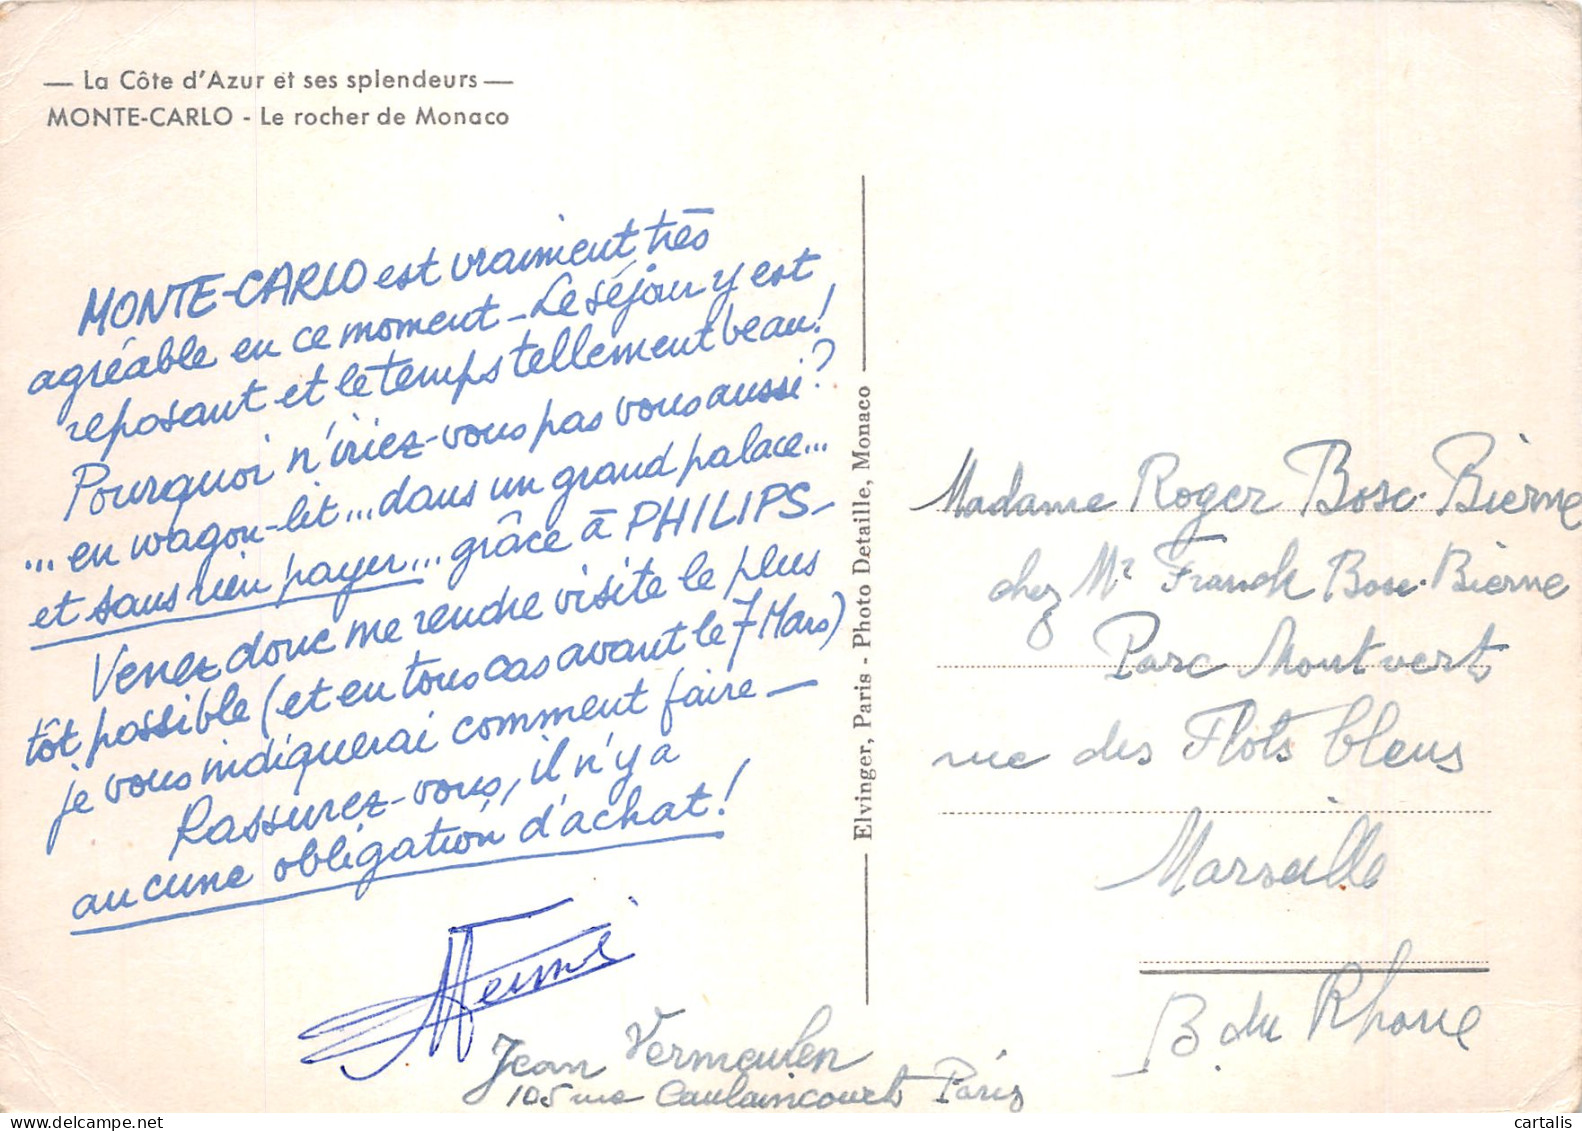 — La Côte d'Azur et ses splendeurs —
MONTE-CARLO - Le rocher de Monaco
MONTE-CARLO est vraiment très
agréable en ce moment - Le séjour y est
reposant et le temps tellement beau!
Pourquoi n'iriez-vous pas vous aussi?
... en wagon-lit ... dans un grand palace...
et sans rien payer... grâce à PHILIPS -
Venez donc me rendre visite le plus
tôt possible (et en tous cas avant le 7 Mars)
je vous indiquerai comment faire —
Rassurez-vous, il n'y a
aucune obligation d'achat!
Jean Vermeulen
105 rue Caulaincourt Paris
Elvinger, Paris - Photo Detaille, Monaco
Madame Roger Bosc-Bierne
chez Mr Franck Bosc-Bierne
Parc Montvert
rue des Flots bleus
Marseille
B du Rhone
cartalis